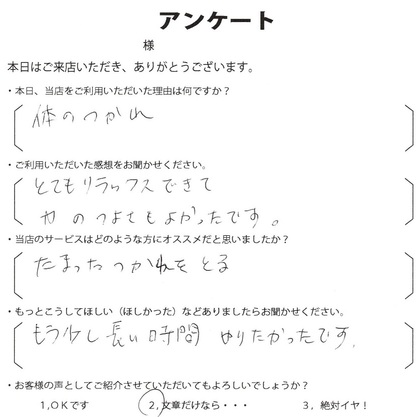 アンケート
様
本日はご来店いただき、ありがとうございます。
・本日、当店をご利用いただいた理由は何ですか？
体のつかれ
・ご利用いただいた感想をお聞かせください。
とてもリラックスできて
力のつよてもよかったです。
・当店のサービスはどのような方にオススメだと思いましたか？
たまったつかれをとる
・もっとこうしてほしい（ほしかった）などありましたらお聞かせください。
もう少し長い時間 やりたかったです。
・お客様の声としてご紹介させていただいてもよろしいでしょうか？
1,OKです 2,文章だけなら・・・ 3，絶対イヤ！